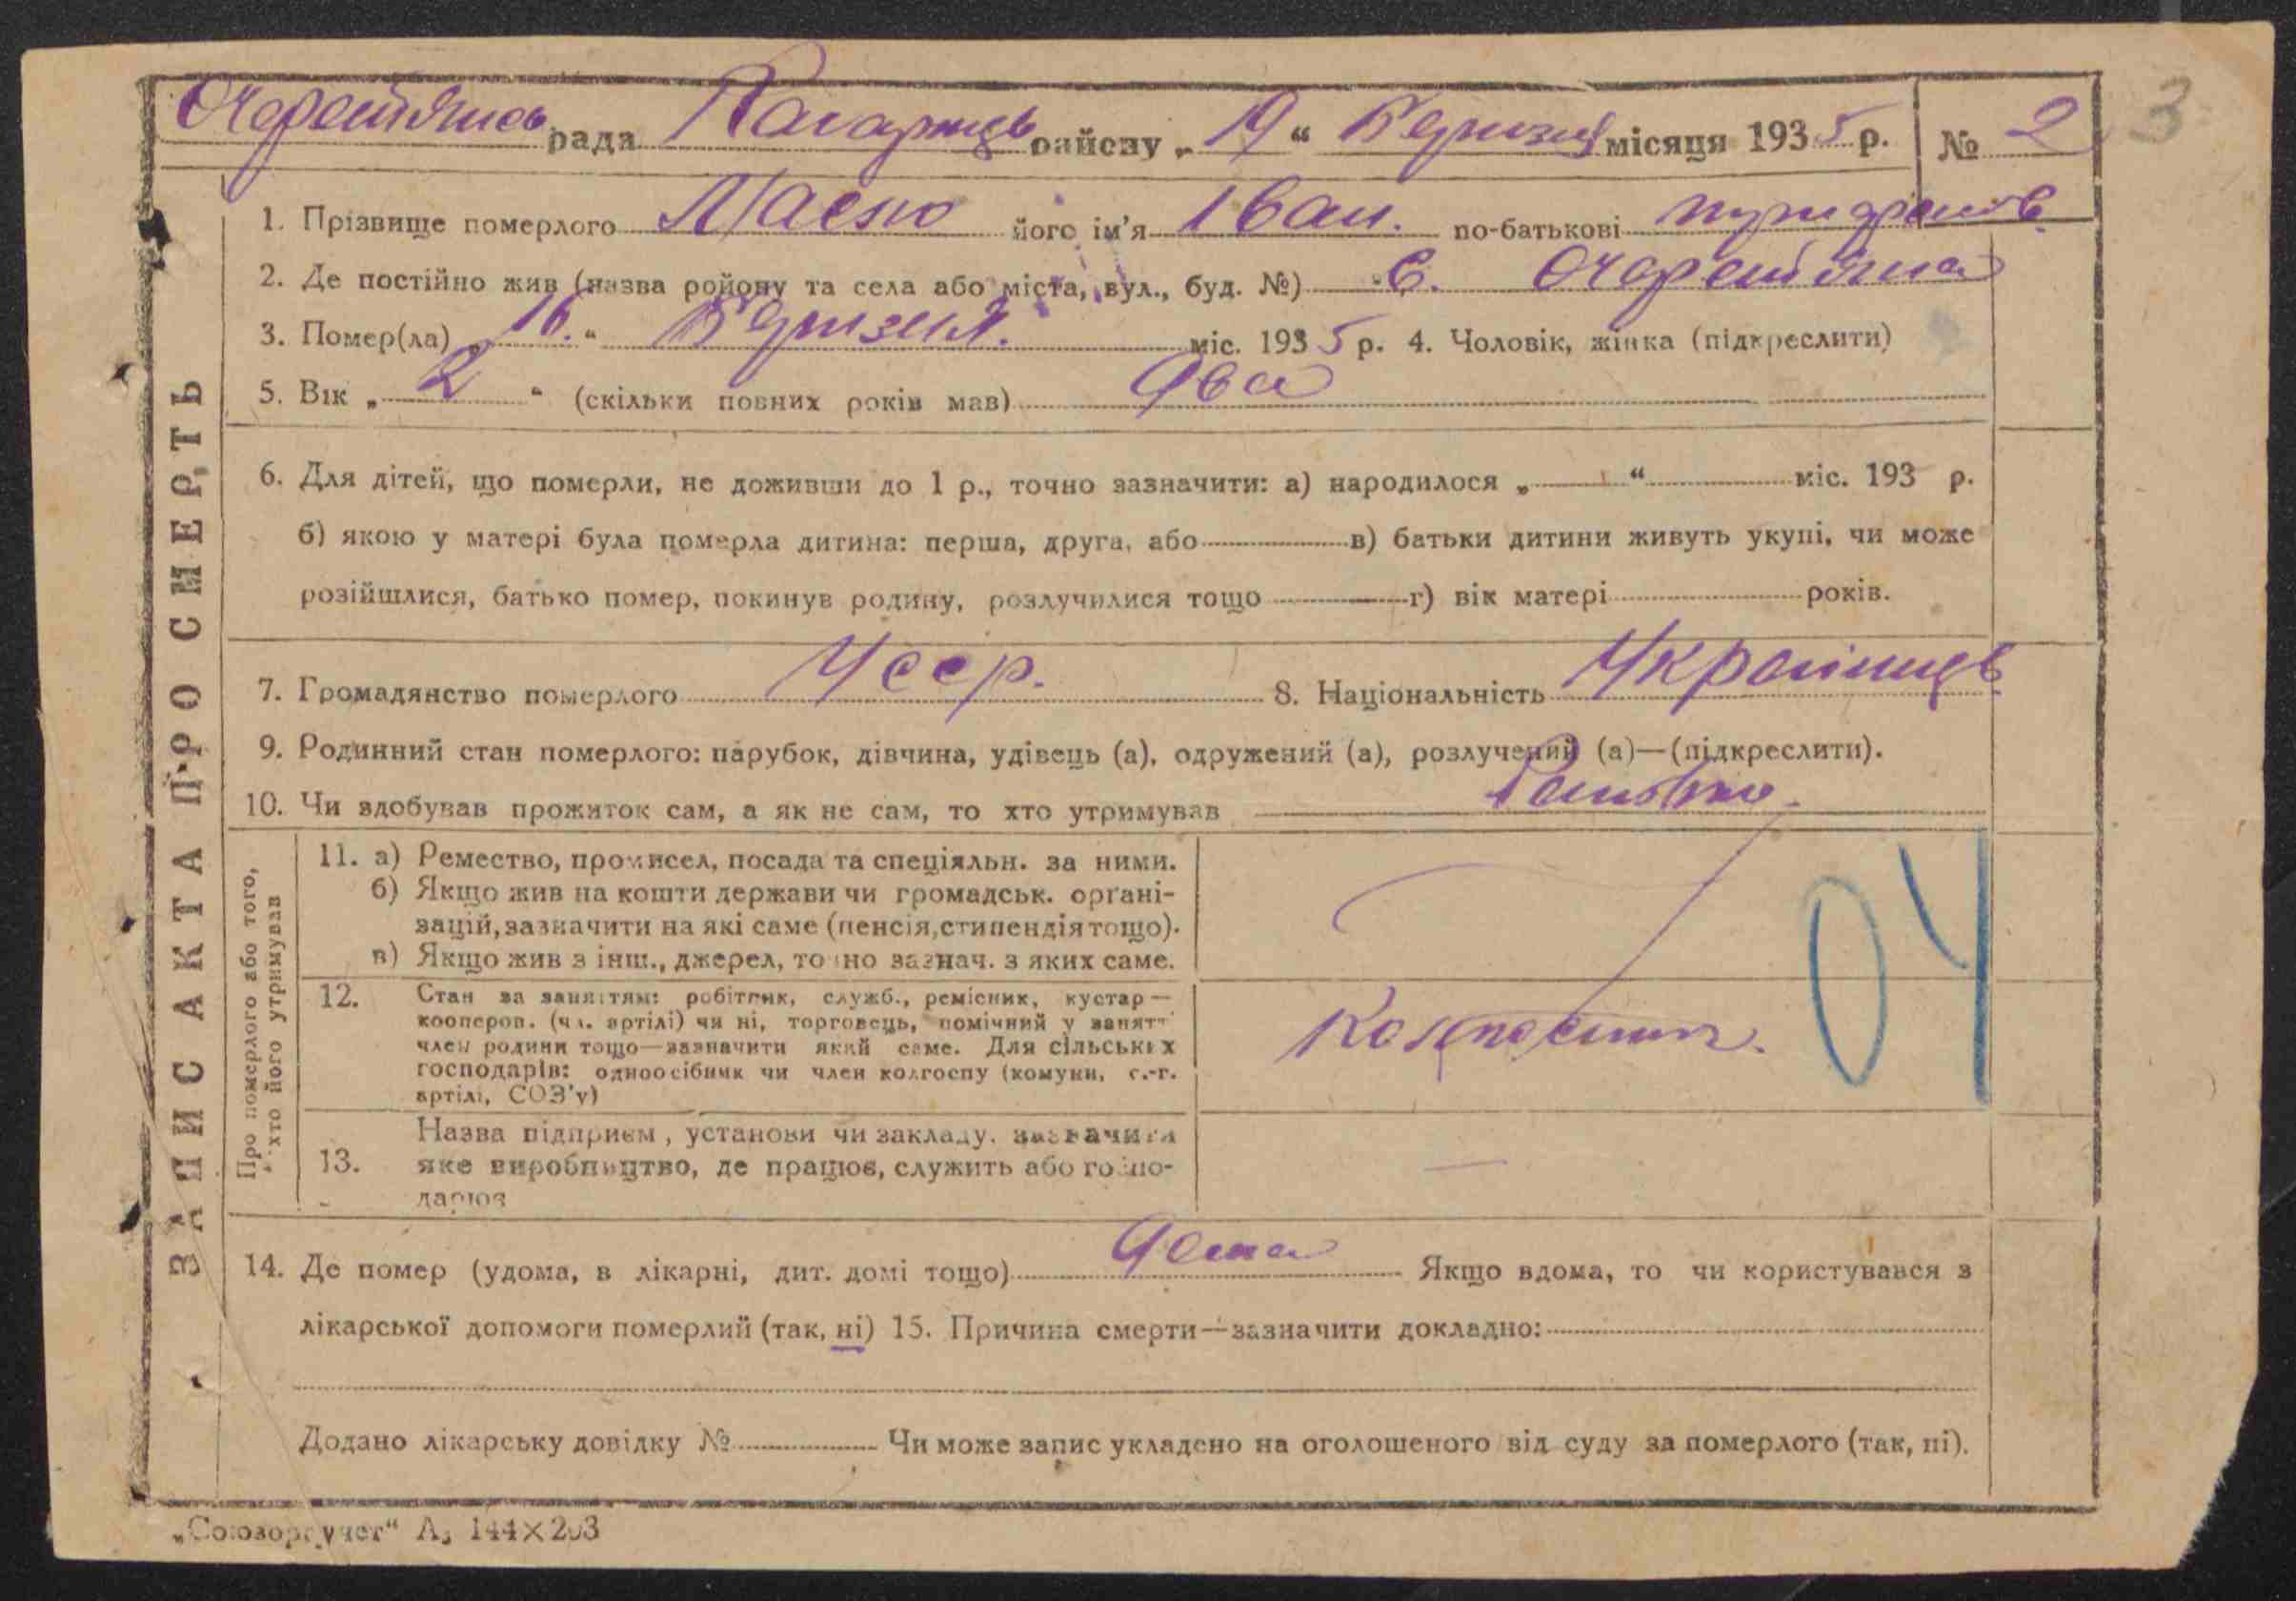 рада районУ „ 19 “ місяця 1935 р. № 2
3
ЗАПИС АКТА ПРО СМЕРТЬ
1. Прізвище померлого його ім'я Іван. по-батькові
2. Де постійно жив (назва ройону та села або міста, вул., буд. №) с.
3. Помер(ла) „ 16. “ міс. 1935 р. 4. Чоловік, жінка (підкреслити)
5. Вік „ 2 “ (скільки повних років мав) два
6. Для дітей, що померли, не доживши до 1 р., точно зазначити: а) народилося „ “ міс. 193 р.
б) якою у матері була померла дитина: перша, друга, або в) батьки дитини живуть укупі, чи може
розійшлися, батько помер, покинув родину, розлучилися тощо г) вік матері років.
7. Громадянство померлого Усср. 8. Національність Українець
9. Родинний стан померлого: парубок, дівчина, удівець (а), одружений (а), розлучений (а)—(підкреслити).
10. Чи здобував прожиток сам, а як не сам, то хто утримував
Про померлого або того,
хто його утримував
11. а) Ремество, промисел, посада та спеціяльн. за ними.
б) Якщо жив на кошти держави чи громадськ. орґані-
зацій, зазначити на які саме (пенсія, стипендія тощо).
в) Якщо жив з інш., джерел, точно зазнач. з яких саме.
04
12. Стан за заняттям: робітник, служб., ремісник, кустар —
кооперов. (чл. артілі) чи ні, торговець, помічний у занятт
член родини тощо—зазначити який саме. Для сільських
господарів: одноосібник чи член колгоспу (комуни, с.-г.
артілі, СОЗ'у)
13. Назва підприєм, установи чи закладу, зазначити
яке виробництво, де працює, служить або госпо-
дарює
14. Де помер (удома, в лікарні, дит. домі тощо) дома Якщо вдома, то чи користувався з
лікарської допомоги померлий (так, ні) 15. Причина смерти—зазначити докладно:
Додано лікарську довідку № Чи може запис укладено на оголошеного від суду за померлого (так, ні).
„Союзоргучет“ А₅ 144×203